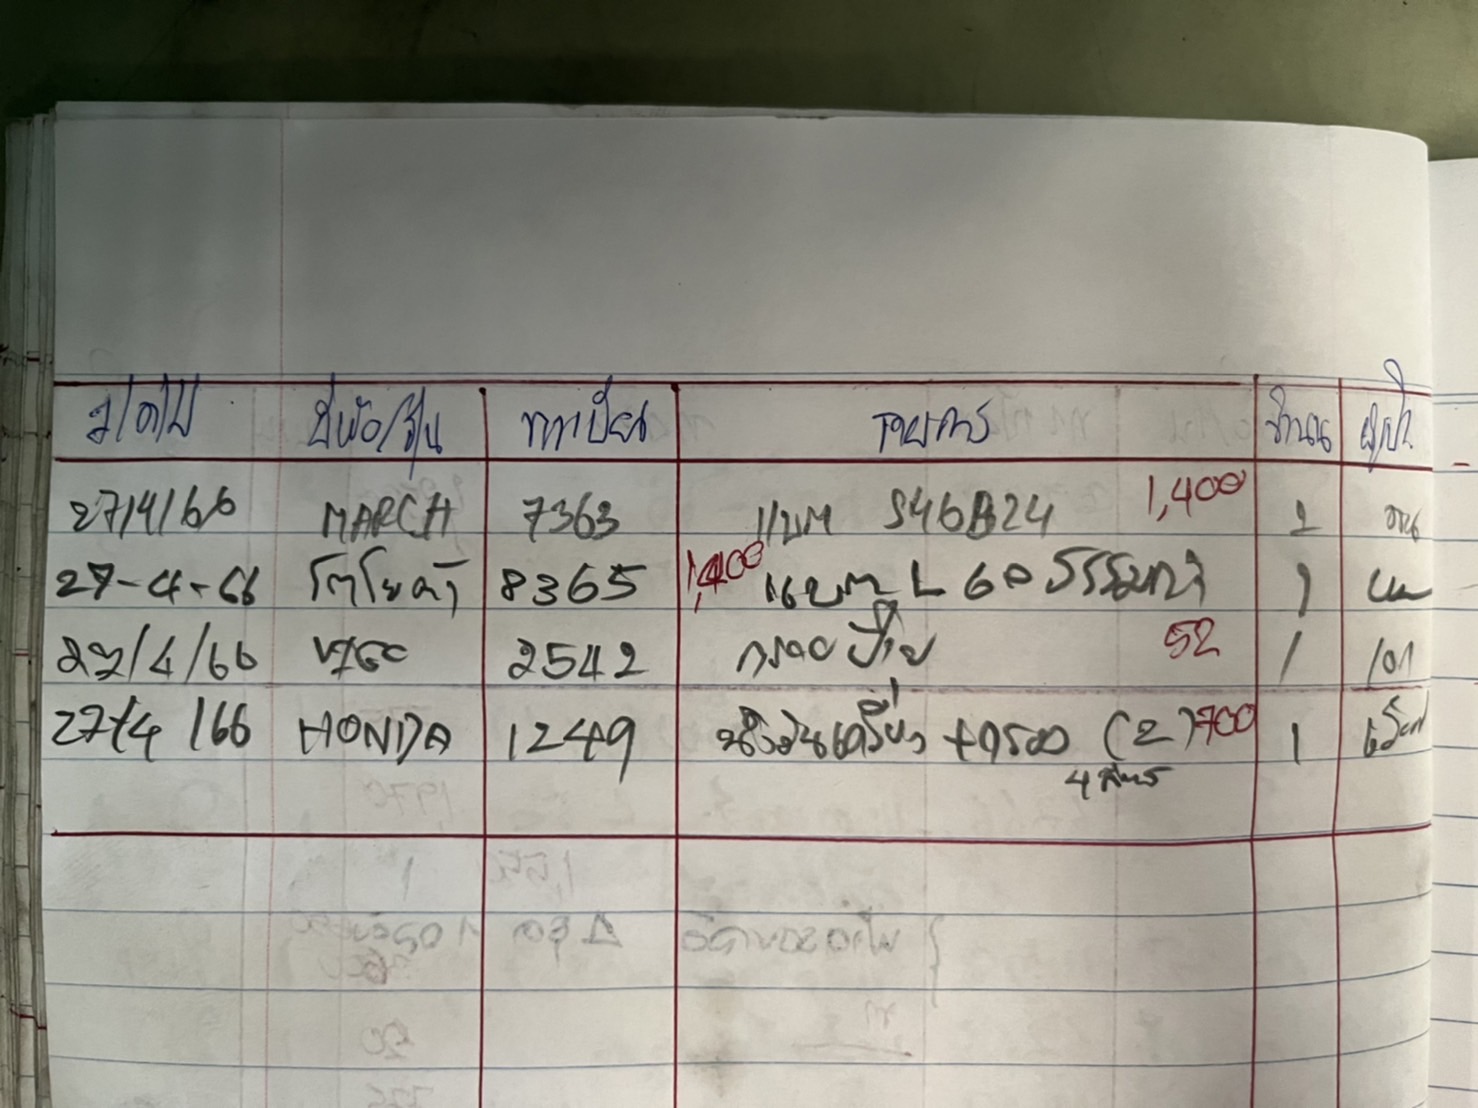 ว/ด/ป ยี่ห้อ/รุ่น ทะเบียน รายการ จำนวน ผู้เบิก
27/4/66 MARCH 7363 แบต S46B24 1,400 1
27-4-66 โตโยต้า 8365 1,400 แบต L 60 ธรรมดา 1
27/4/66 VIGO 2542 กรอง 52 1
27/4/66 HONDA 1249 น้ำมันเครื่อง + กรอง (2) 700 1
4 ลิตร